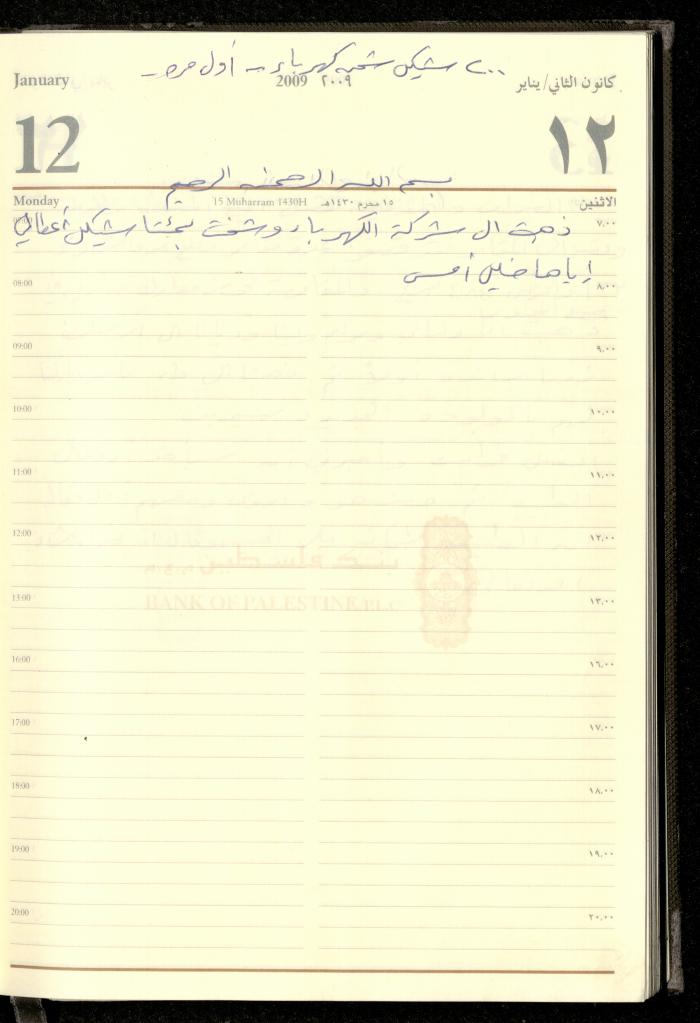 ٢٠٠ شيكل شحن كهرباء - أول مرة -
January
2009 ٢٠٠٩
كانون الثاني/يناير
12
١٢
بسم الله الرحمن الرحيم
Monday
15 Muharram 1430H
١٥ محرم ١٤٣٠هـ
الاثنين
٧,٠٠
ذهبت الى شركة الكهرباء وشحنت بمئتا شيكل أعطاني
إياها أمس
08:00
٨,٠٠
09:00
٩,٠٠
10:00
١٠,٠٠
11:00
١١,٠٠
12:00
١٢,٠٠
بنك فلسطين
BANK OF PALESTINE PLC
13:00
١٣,٠٠
16:00
١٦,٠٠
17:00
١٧,٠٠
18:00
١٨,٠٠
19:00
١٩,٠٠
20:00
٢٠,٠٠